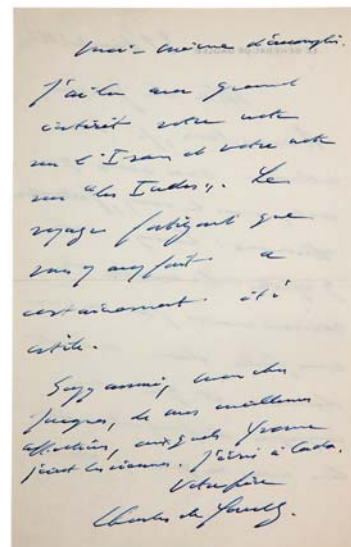 moi-même d'accomplir.
J'ai lu avec grand
intérêt votre note
sur l'Iran et votre note
sur "les Indes". Le
voyage fatigant que
vous y avez fait a
certainement été
utile.
Soyez assuré, mon cher
Jacques, de mes meilleures
affections, auxquelles Yvonne
joint les siennes. J'écris à
Votre frère
Charles de Gaulle.